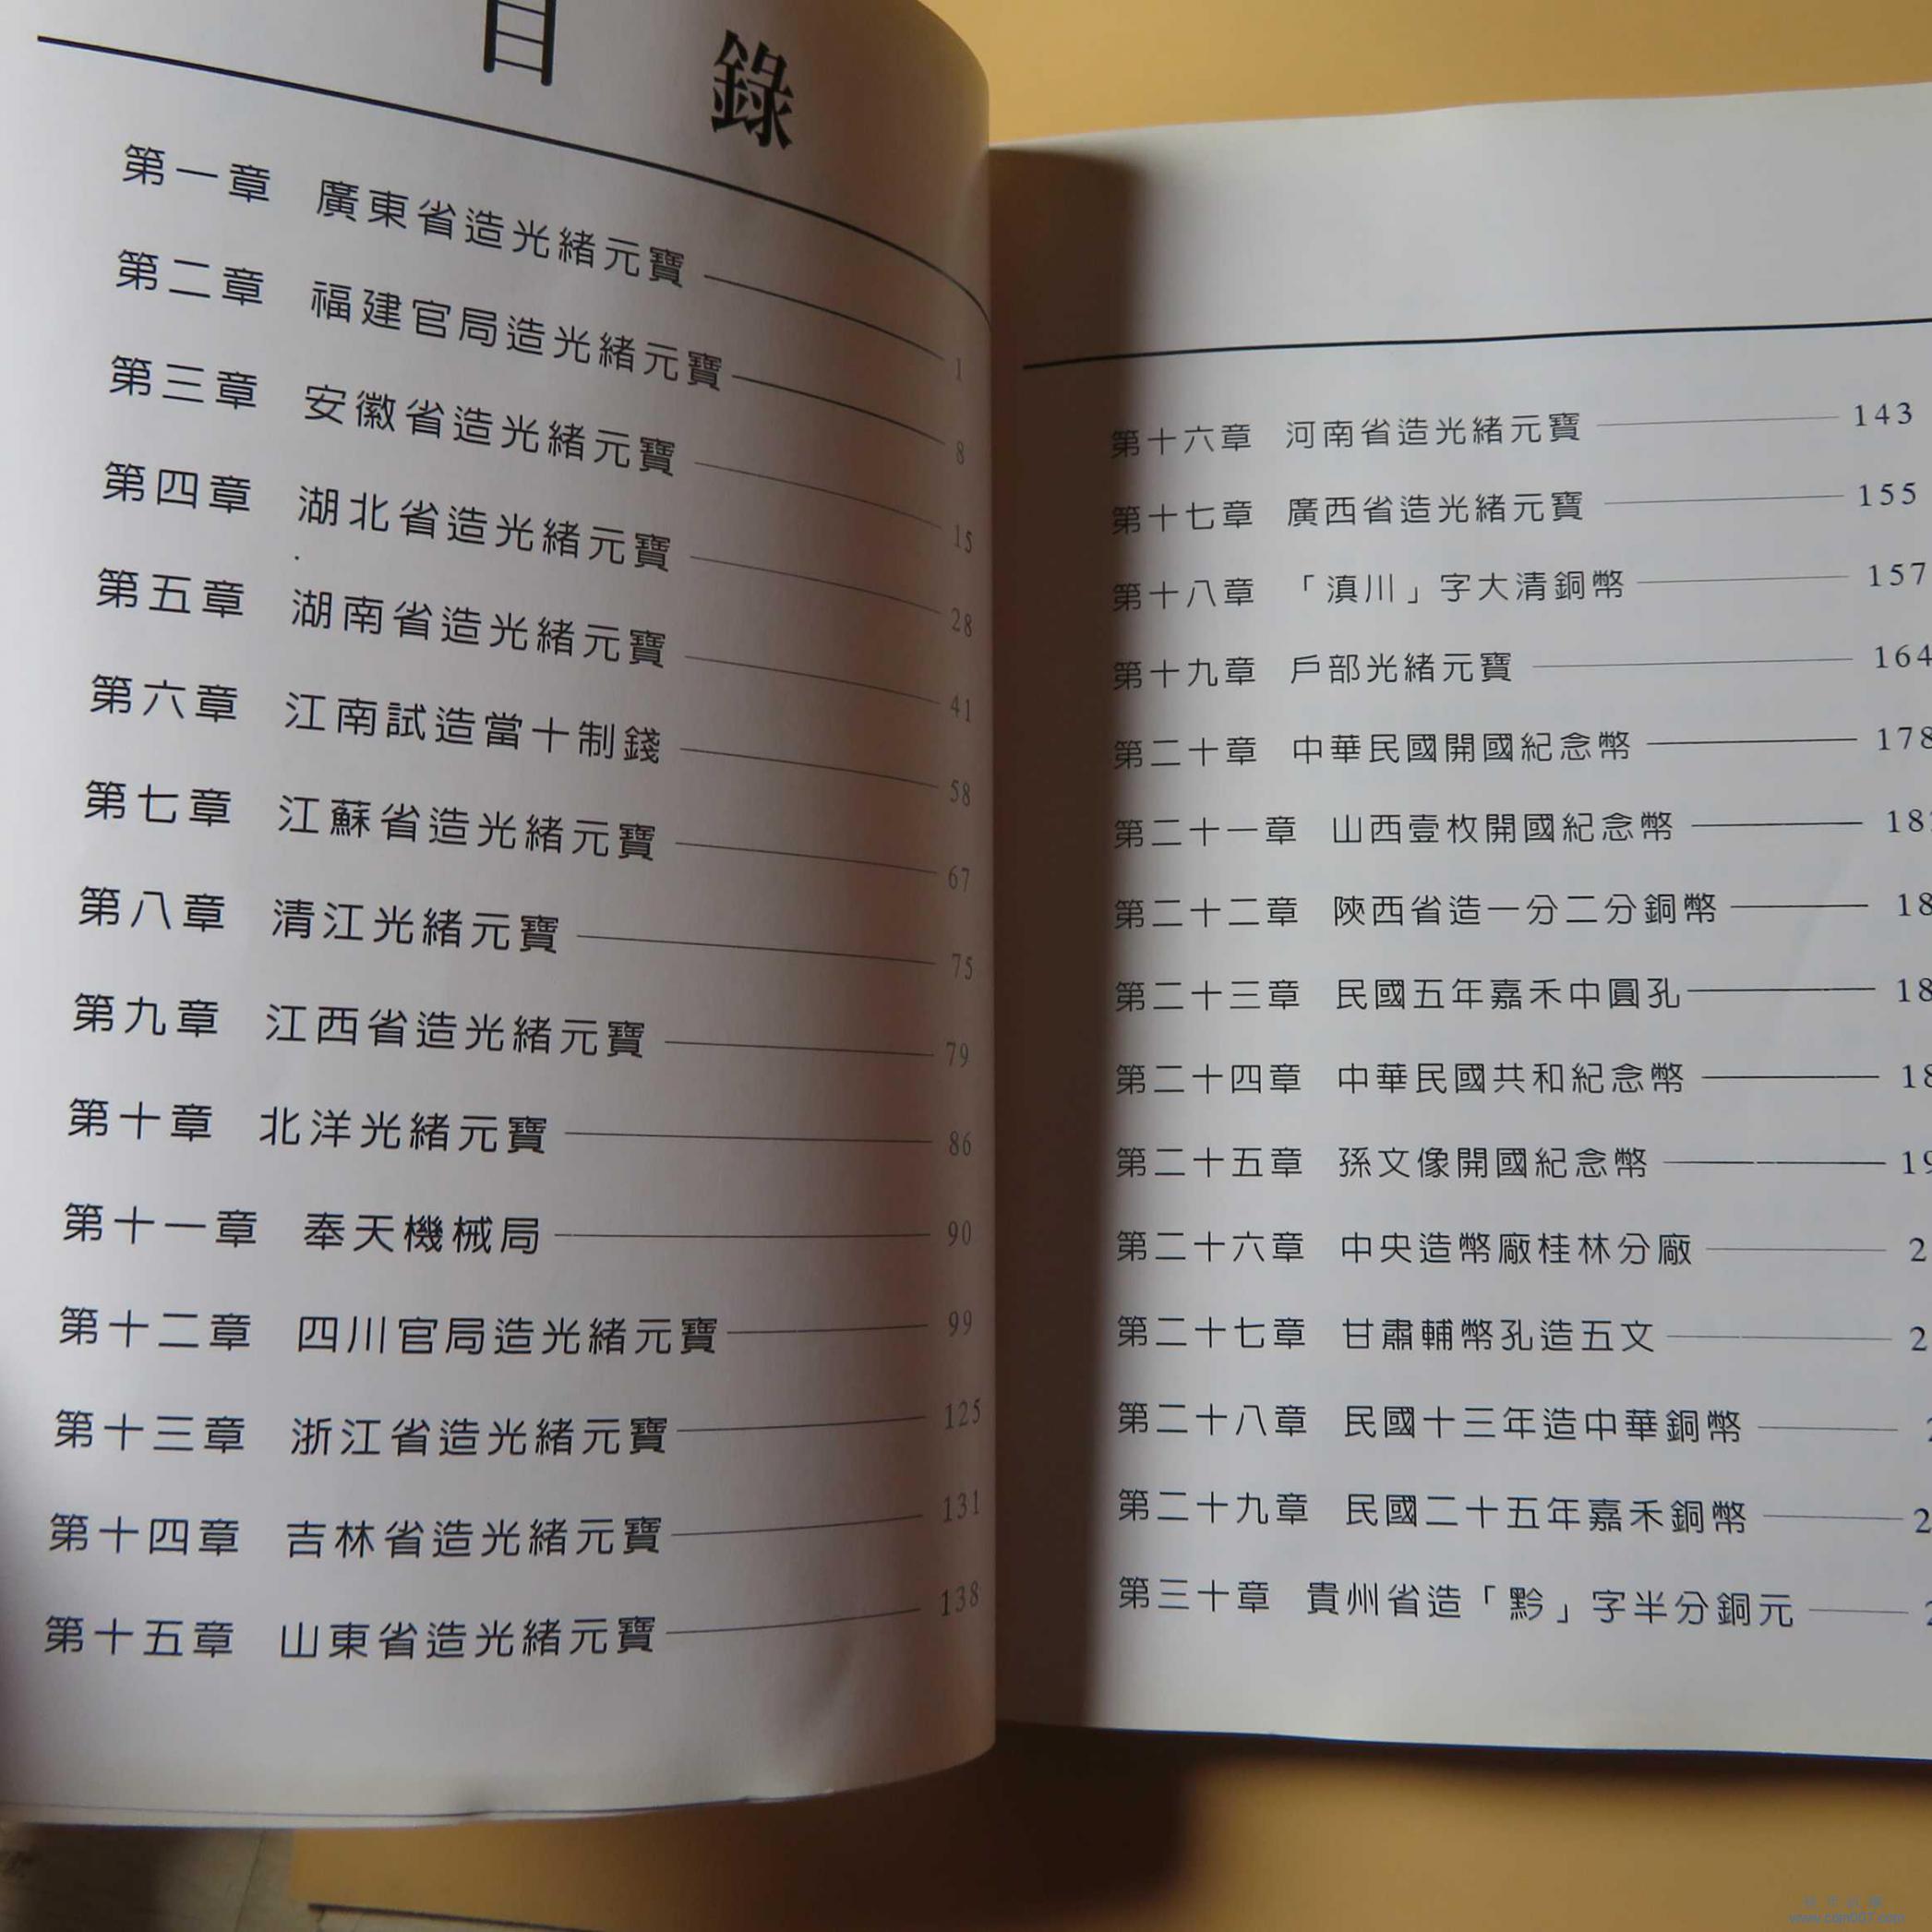 目 錄
第一章 廣東省造光緒元寶 1
第二章 福建官局造光緒元寶 8
第三章 安徽省造光緒元寶 15
第四章 湖北省造光緒元寶 28
第五章 湖南省造光緒元寶 41
第六章 江南試造當十制錢 58
第七章 江蘇省造光緒元寶 67
第八章 清江光緒元寶 75
第九章 江西省造光緒元寶 79
第十章 北洋光緒元寶 86
第十一章 奉天機械局 90
第十二章 四川官局造光緒元寶 99
第十三章 浙江省造光緒元寶 125
第十四章 吉林省造光緒元寶 131
第十五章 山東省造光緒元寶 138
第十六章 河南省造光緒元寶 143
第十七章 廣西省造光緒元寶 155
第十八章 「滇川」字大清銅幣 157
第十九章 戶部光緒元寶 164
第二十章 中華民國開國紀念幣 178
第二十一章 山西壹枚開國紀念幣
第二十二章 陝西省造一分二分銅幣
第二十三章 民國五年嘉禾中圓孔
第二十四章 中華民國共和紀念幣
第二十五章 孫文像開國紀念幣
第二十六章 中央造幣廠桂林分廠
第二十七章 甘肅輔幣孔造五文
第二十八章 民國十三年造中華銅幣
第二十九章 民國二十五年嘉禾銅幣
第三十章 貴州省造「黔」字半分銅元